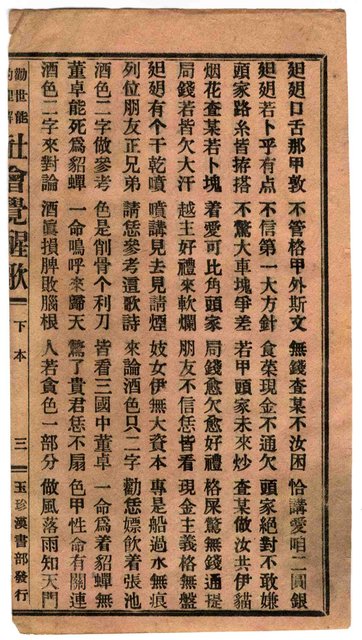 廻廻口舌那甲敦　不管格甲外斯文　無錢查某不汝困　恰講愛咱二圓銀
廻廻若卜乎有点　不信第一大方針　食榮現金不通欠　頭家絕對不敢嫌
頭家路糸皆拵搭　不驚大車塊爭差　若甲頭家未來炒　查某做汝共伊貓
烟花查某若卜塊　着愛可比角頭家　局錢愈欠愈好禮　格屎驚無錢通提
局錢若皆欠大汗　越主好禮來軟爛　朋友不信恁皆看　現金主義格無盤
廻廻有个干乾噴　噴講見去見請煙　妓女伊無大資本　專是船過水無痕
列位朋友正兄弟　請恁參考這歌詩　來論酒色只二字　勸恁嫖飲着張池
酒色二字做參考　色是削骨个利刀　皆看三國中董卓　一命為着貂蟬無
董卓能死為貂蟬　一命嗚呼來歸天　驚了貴君恁不扇　色甲性命有關連
酒色二字來對論　酒真損脾敗腦根　人若貪色一部分　做風落雨知天門
勸世能
社會覺醒歌　下本　三　玉珍漢書部發行